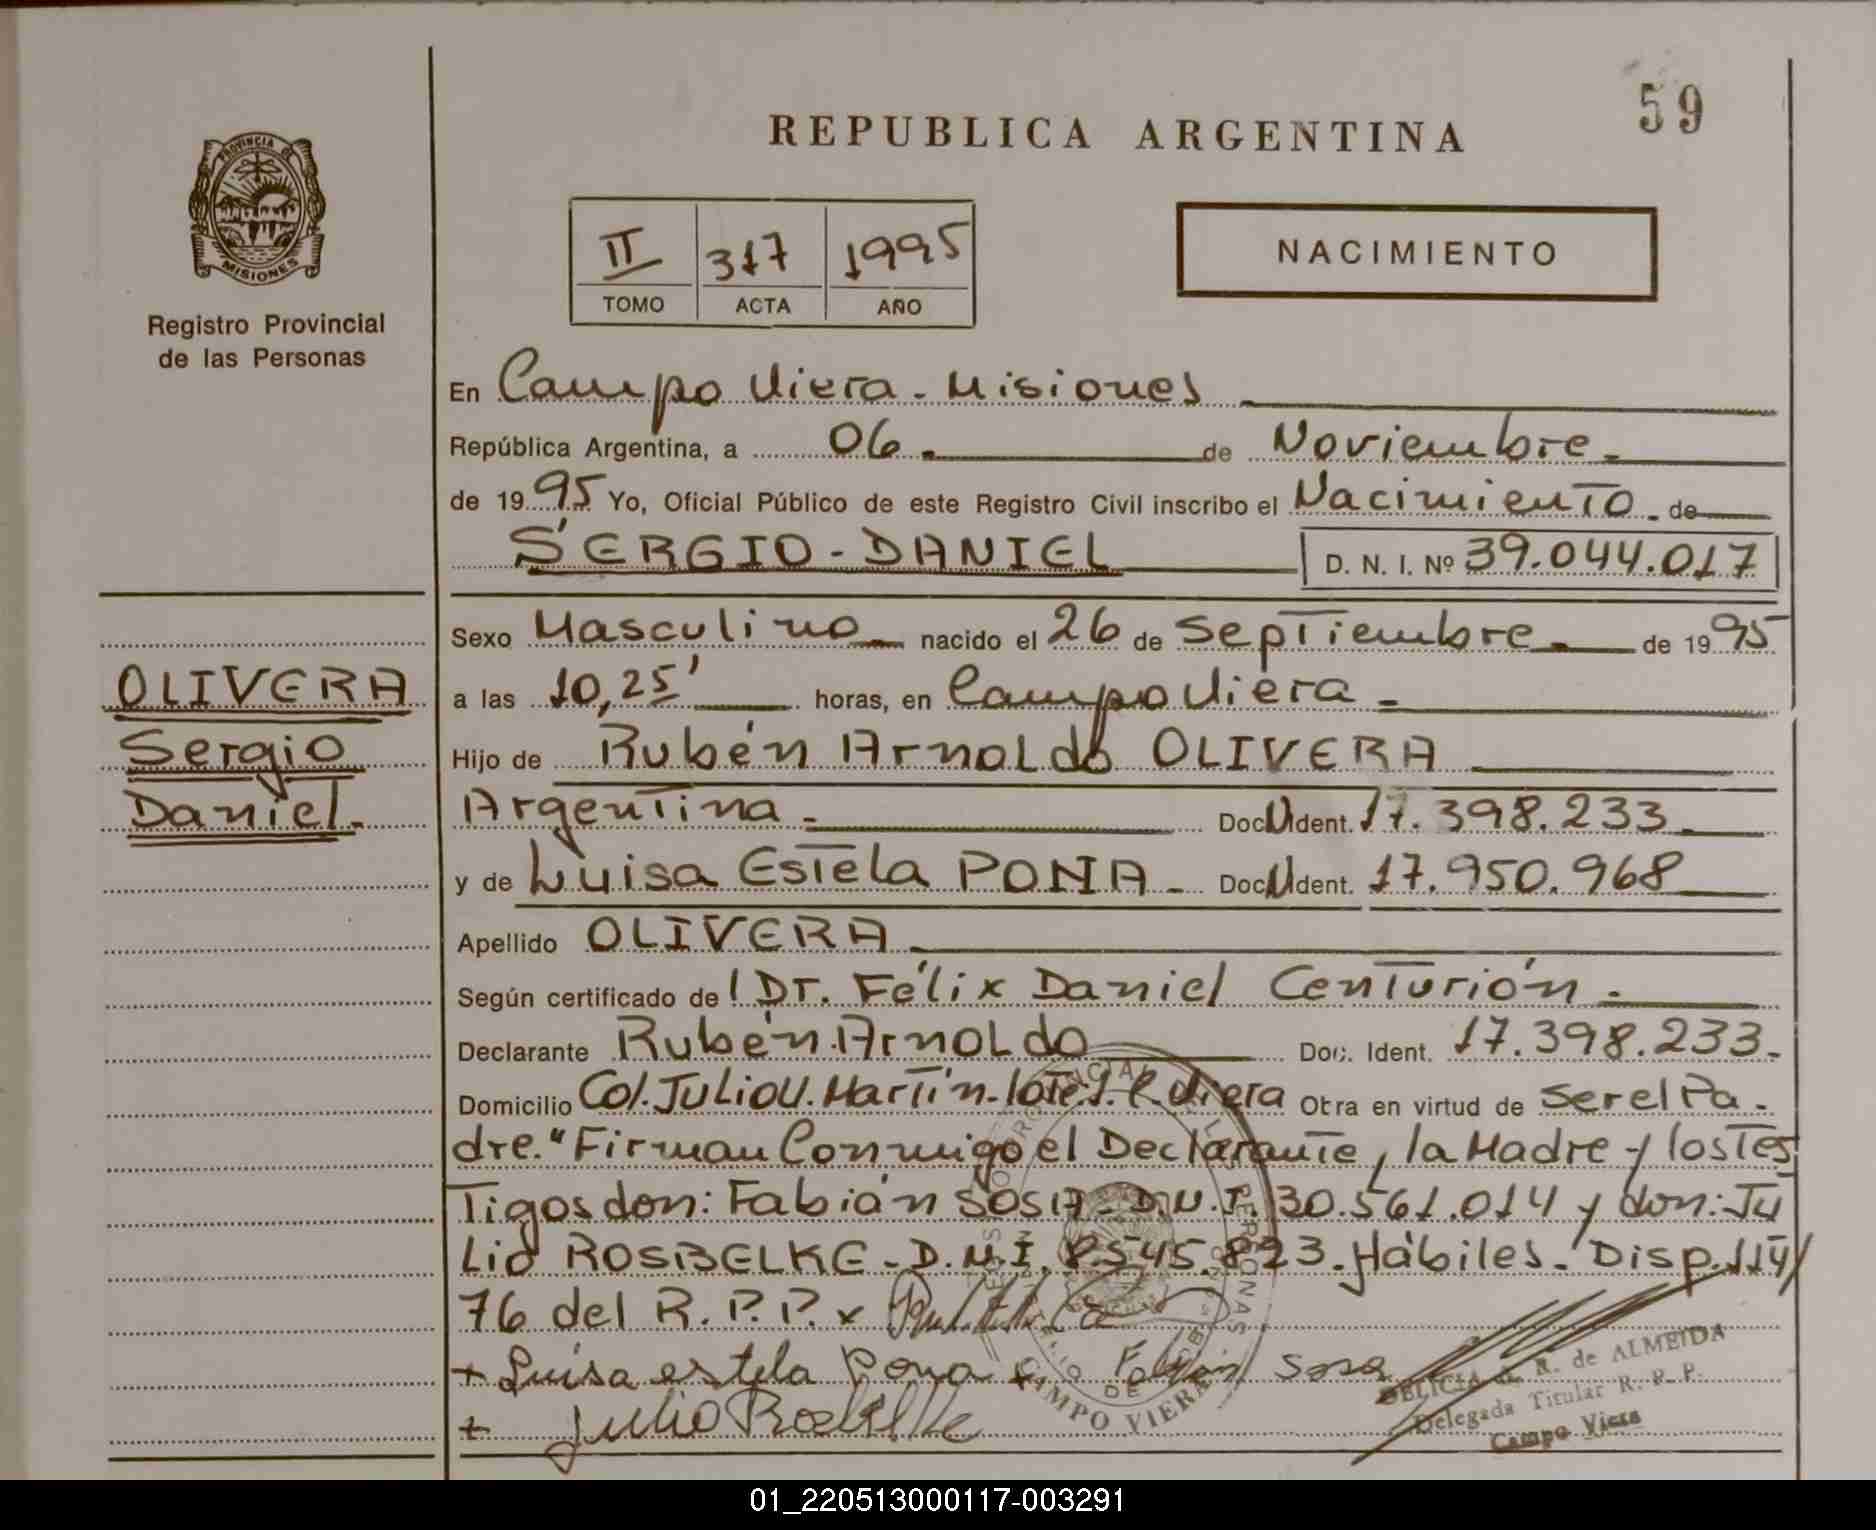 59
REPUBLICA ARGENTINA
PROVINCIA DE
MISIONES
Registro Provincial
de las Personas
II 317 1995
TOMO ACTA AÑO
NACIMIENTO
En Campo Viera - Misiones
República Argentina, a 06 de Noviembre
de 1995 Yo, Oficial Público de este Registro Civil inscribo el Nacimiento de
SERGIO - DANIEL D. N. I. Nº 39.044.017
Sexo Masculino nacido el 26 de Septiembre de 1995
OLIVERA
Sergio
Daniel
a las 10,25' horas, en Campo Viera
Hijo de Rubén Arnoldo OLIVERA
Argentina Doc. Ident. 17.398.233
y de Luisa Estela PONA Doc. Ident. 17.950.968
Apellido OLIVERA
Según certificado de Dr. Félix Daniel Centurión
Declarante Rubén Arnoldo Doc. Ident. 17.398.233
Domicilio Col. Julio U. Martín - lote Viera Otra en virtud de ser el Pa-
dre." Firman Conmigo el Declarante, la Madre y los Tes
Tigos don: Fabián SOSA - D.N.I. 30.561.014 y don: Ju
Lio ROSBELKE - D.N.I. 8.545.823. Hábiles - Disp. 114/
76 del R.P.P. x
+ Luisa estela Pona x Fabián Sosa
+ Julio
CAMPO VIERA
DELICIA R. de ALMEIDA
Delegada Titular R. P. P.
Campo Viera
01_220513000117-003291